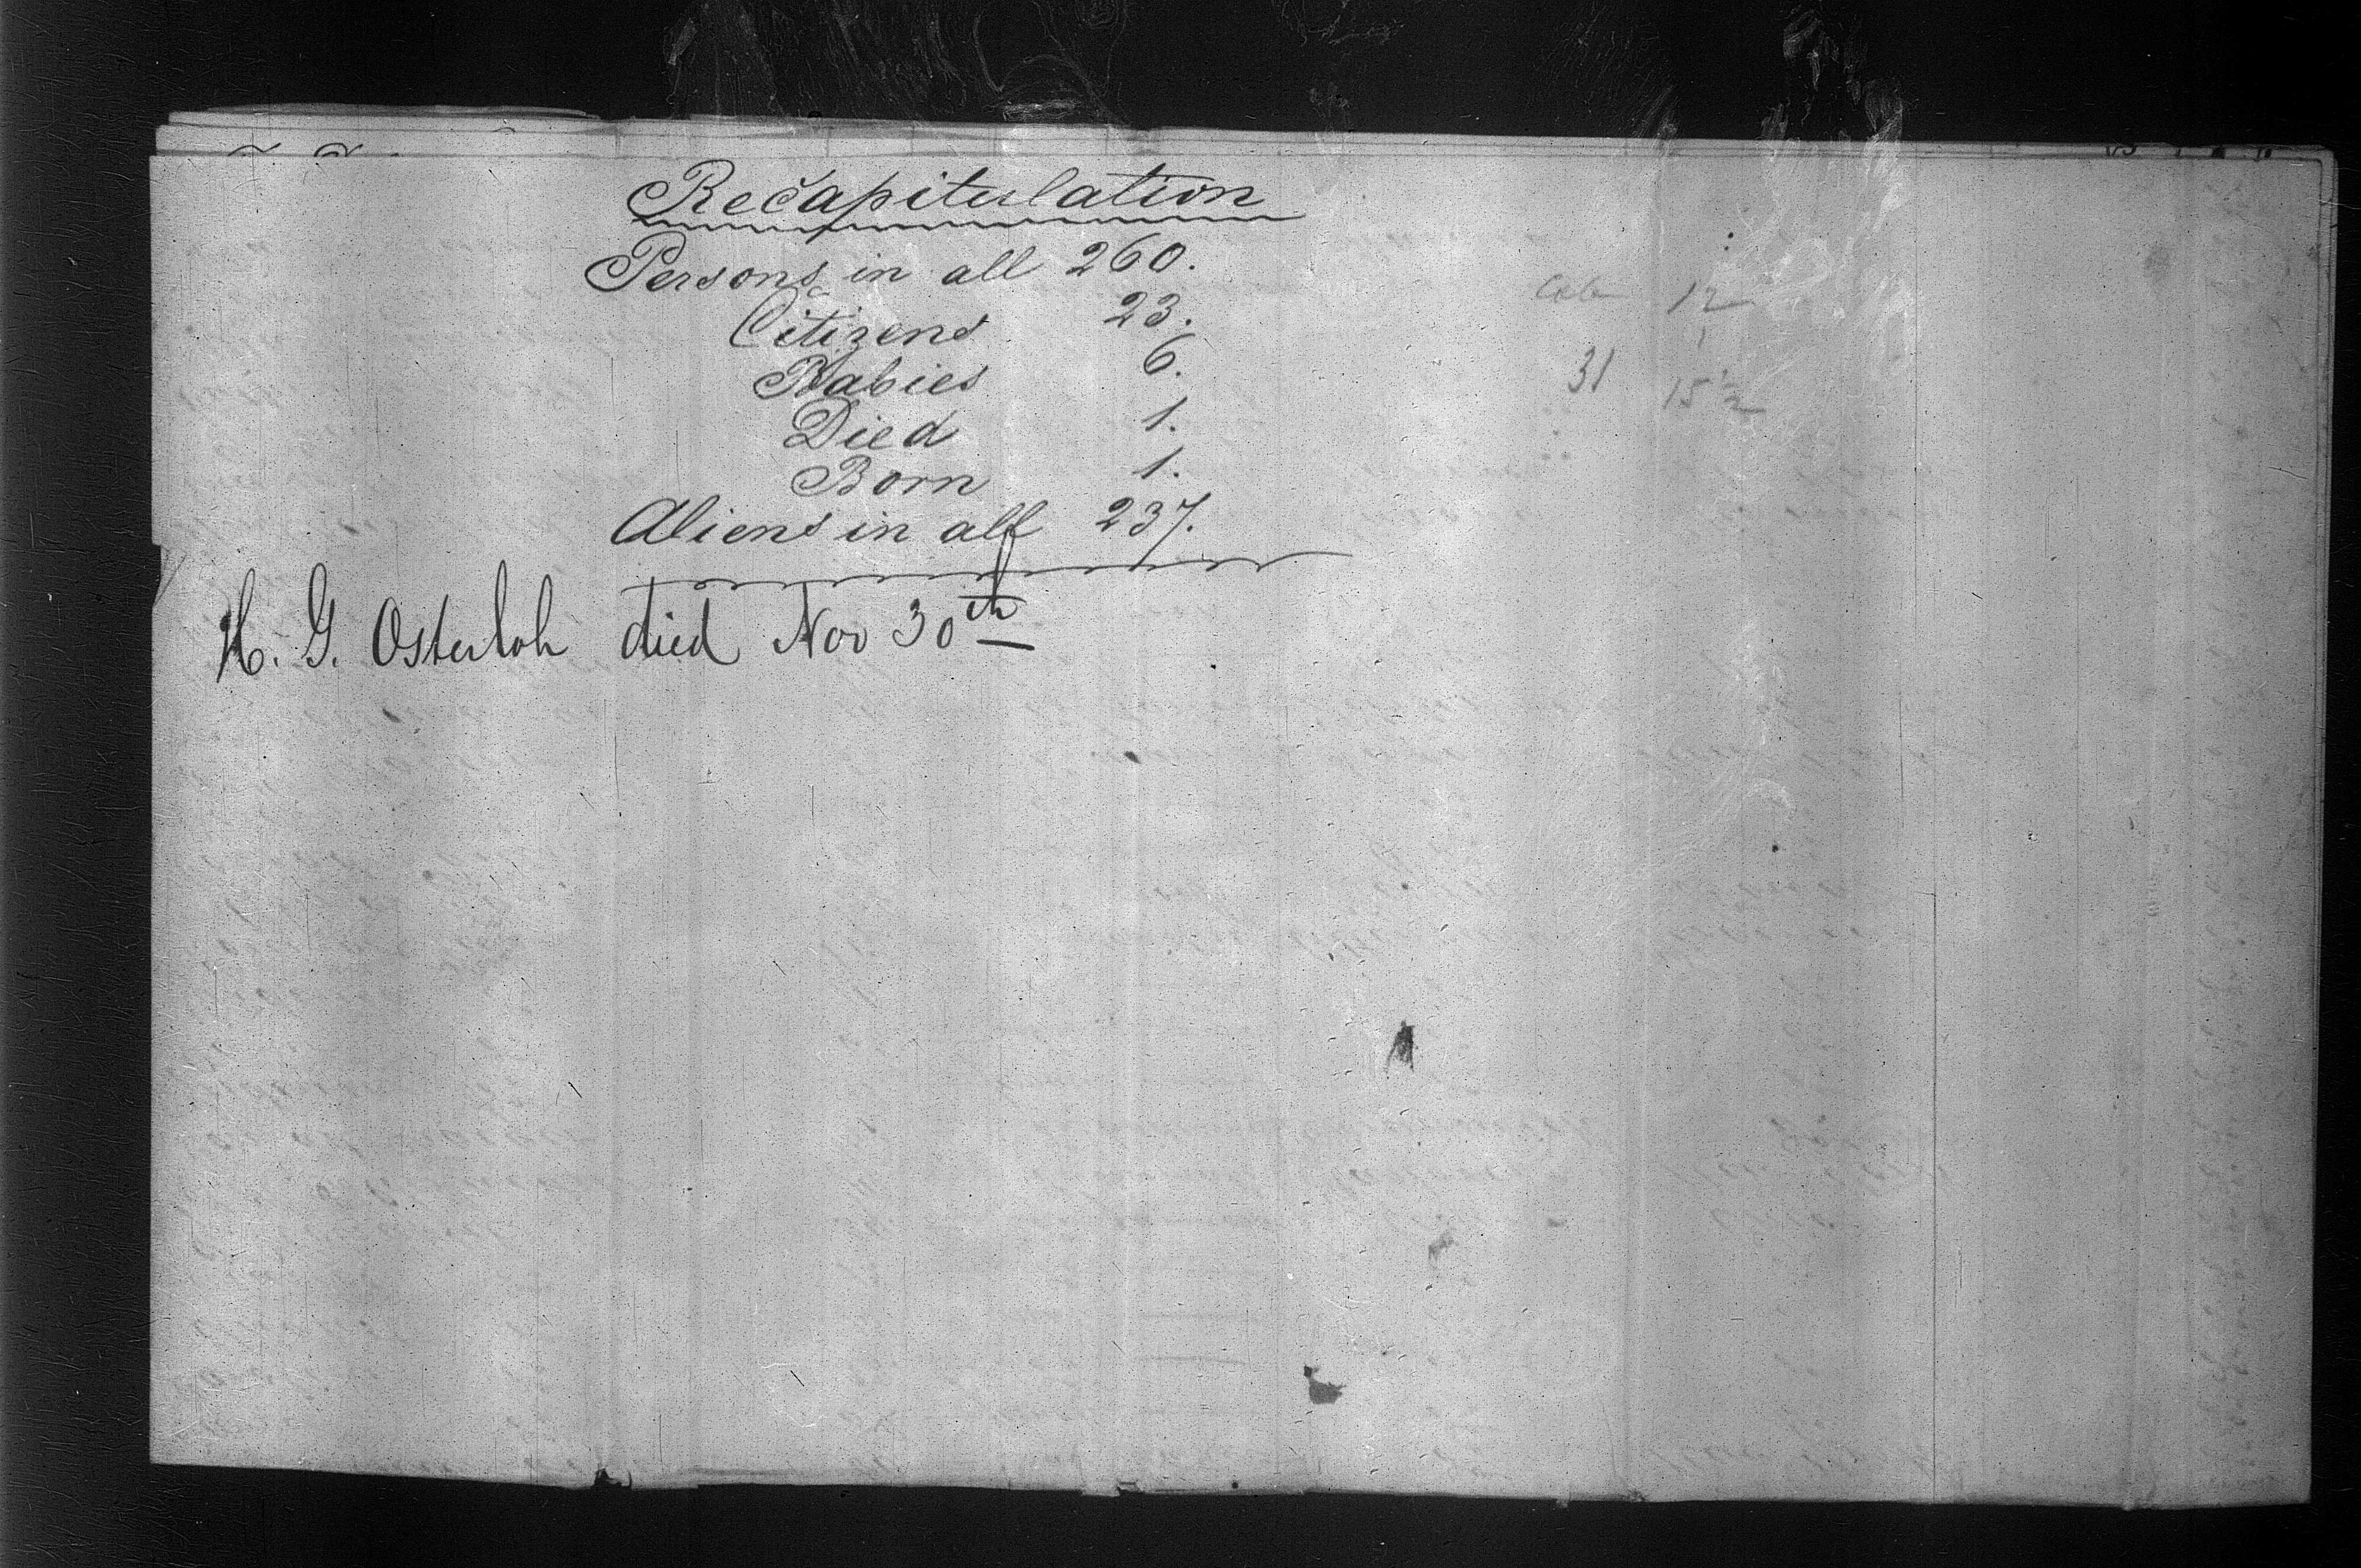 Recapitulation
Persons in all 260.
Citizens 23.
Babies 6.
Died 1.
Born 1.
Aliens in all 237.
H. G. Osterloh died Nov 30th
12
31 15 1/2